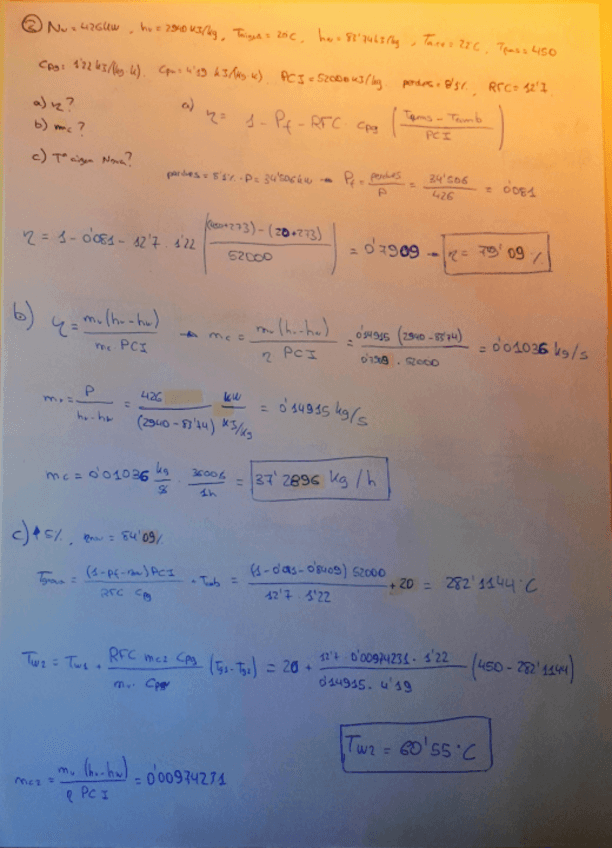 ② Nu = 426 kW , hv = 2940 kJ/kg , Taigua = 20°C , hw = 83'74 kJ/kg , Taire = 25°C , Tgases = 450
Cpg = 1'22 kJ/(kg·K) . Cpw = 4'19 kJ/(kg·K) . PCI = 52000 kJ/kg . perdues = 8'1% , RFC = 12'7
a) η?
b) mc?
c) Tª aigua Nova?
a) η = 1 - Pf - RFC · Cpg ( Tgasos - Tamb / PCI )
perdues = 8'1% · P = 34'506 kW → Pf = perdues / P = 34'506 / 426 = 0'081
η = 1 - 0'081 - 12'7 · 1'22 ( (450+273) - (20+273) / 52000 ) = 0'7909 → η = 79'09 %
b) η = mv (hv - hw) / mc · PCI → mc = mv (hv - hw) / η PCI = 0'14915 (2940 - 83'74) / 0'7909 · 52000 = 0'01036 kg/s
mv = P / hv - hw = 426 / (2940 - 83'74) kW / kJ/kg = 0'14915 kg/s
mc = 0'01036 kg/s · 3600s / 1h = 37'2896 kg/h
c) ↑5% , ηnou = 84'09%
= (1 - Pf - ηnou) PCI / RFC Cpg + Tamb = (1 - 0'081 - 0'8409) 52000 / 12'7 · 1'22 + 20 = 282'1144 °C
Tw2 = Tw1 + RFC mc2 Cpg / mv · Cpw (Tg1 - Tg2) = 20 + 12'7 · 0'00974231 · 1'22 / 0'14915 · 4'19 (450 - 282'1144)
Tw2 = 60'55 °C
mc2 = mv (hv - hw) / η PCI = 0'00974231